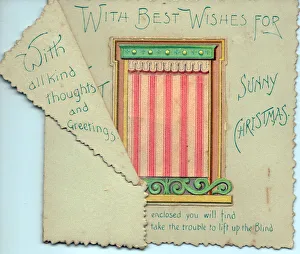 With Best Wishes for
With
all kind
thoughts
and
Greetings
T
Sunny
Christmas.
enclosed you will find
take the trouble to lift up the Blind